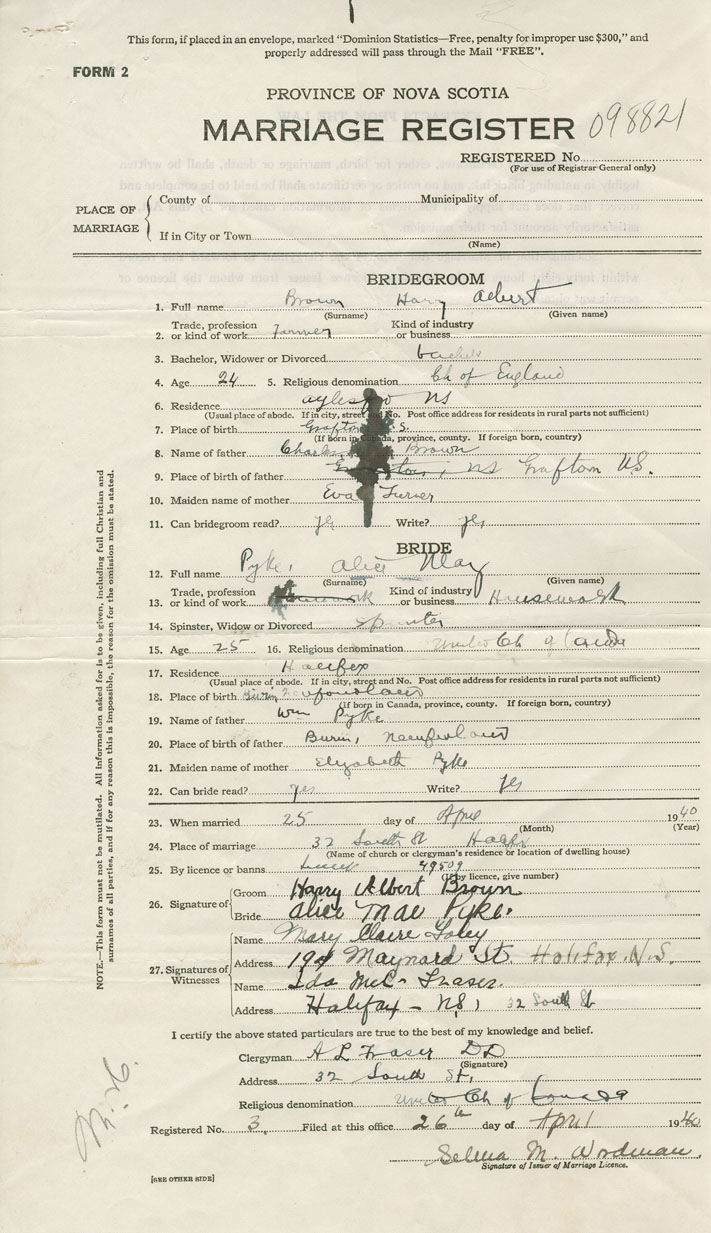 This form, if placed in an envelope, marked "Dominion Statistics—Free, penalty for improper use $300," and
properly addressed will pass through the Mail "FREE".
FORM 2
PROVINCE OF NOVA SCOTIA
MARRIAGE REGISTER 098821
REGISTERED No.
(For use of Registrar General only)
PLACE OF MARRIAGE
County of Municipality of
If in City or Town
(Name)
BRIDEGROOM
1. Full name Brown Harry Albert
(Surname) (Given name)
2. Trade, profession or kind of work Farmer Kind of industry or business
3. Bachelor, Widower or Divorced bachelor
4. Age 24 5. Religious denomination Ch of England
6. Residence NS
(Usual place of abode. If in city, street and No. Post office address for residents in rural parts not sufficient)
7. Place of birth Grafton S.
(If born in Canada, province, county. If foreign born, country)
8. Name of father Charles Brown
9. Place of father's birth NS Grafton
10. Maiden name of mother Eva Turner
11. Can bridegroom read? yes Write? yes
BRIDE
12. Full name Pyke, Alice May
(Surname) (Given name)
13. Trade, profession or kind of work Kind of industry or business Housework
14. Spinster, Widow or Divorced Spinster
15. Age 25 16. Religious denomination United Ch of Canada
17. Residence Halifax
(Usual place of abode. If in city, street and No. Post office address for residents in rural parts not sufficient)
18. Place of birth Burin Newfoundland
(If born in Canada, province, county. If foreign born, country)
19. Name of father Wm Pyke
20. Place of birth of father Burin, Newfoundland
21. Maiden name of mother Elizabeth Pyke
22. Can bride read? yes Write? yes
23. When married 25 day of April 1940
(Month) (Year)
24. Place of marriage 32 South St
(Name of church or clergyman's residence or location of dwelling house)
25. By licence or banns 49509
(If by licence, give number)
26. Signature of Groom Harry Albert Brown
Bride Alice Mae Pyke.
27. Signatures of Witnesses
Name Mary Claire
Address 194 Maynard St. Halifax, N.S.
Name Ida McC Fraser.
Address Halifax - NS, 32 South St
I certify the above stated particulars are true to the best of my knowledge and belief.
Clergyman A L Fraser DD
(Signature)
Address 32 South St,
Religious denomination United Ch of Canada
Registered No. 3 Filed at this office 26th day of April 1940
Selma M. Wordman
Signature of Issuer of Marriage Licence.
[SEE OTHER SIDE]
NOTE.—This form must not be mutilated. All information asked for is to be given, including full Christian and
surnames of all parties, and if for any reason this is impossible, the reason for the omission must be stated.